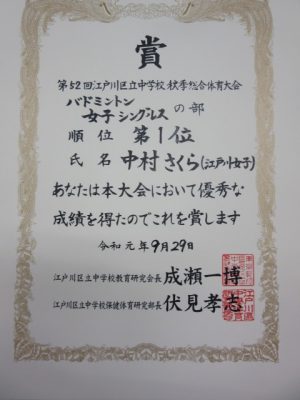 賞
第52回江戸川区立中学校秋季総合体育大会
バドミントン
女子シングルスの部
順位 第1位
氏名 中村さくら(江戸川女子)
あなたは本大会において優秀な
成績を得たのでこれを賞します
令和元年9月29日
江戸川区立中学校教育研究会長 成瀬一博
江戸川区立中学校保健体育研究部長 伏見孝志